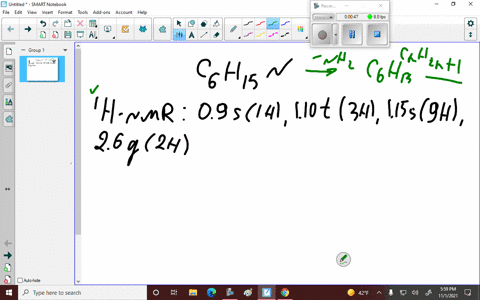 Untitled * - SMART Notebook
File Edit View Insert Format Tools Add-ons Account Help
00:00:47
Group 1
C6H15N -NH2 → C6H13 CnH2n+1
✓
1H-NMR: 0.9 s (1H), 1.10 t (3H), 1.15 s (9H),
2.6 q (2H)
Auto-hide
Type here to search
42°F
5:59 PM
11/1/2021